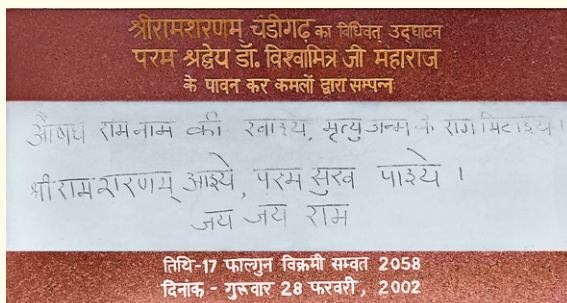 श्रीरामशरणम् चंडीगढ़ का विधिवत् उद्घाटन
परम श्रद्धेय डॉ. विश्वामित्र जी महाराज
के पावन कर कमलों द्वारा सम्पन्न
औषध रामनाम की खाइये, मृत्यु जन्म के रोग मिटाइये।
श्रीरामशरणम् आइये, परम सुख पाइये ।
जय जय राम
तिथि-17 फाल्गुन विक्रमी सम्वत 2058
दिनांक - गुरूवार 28 फरवरी, 2002